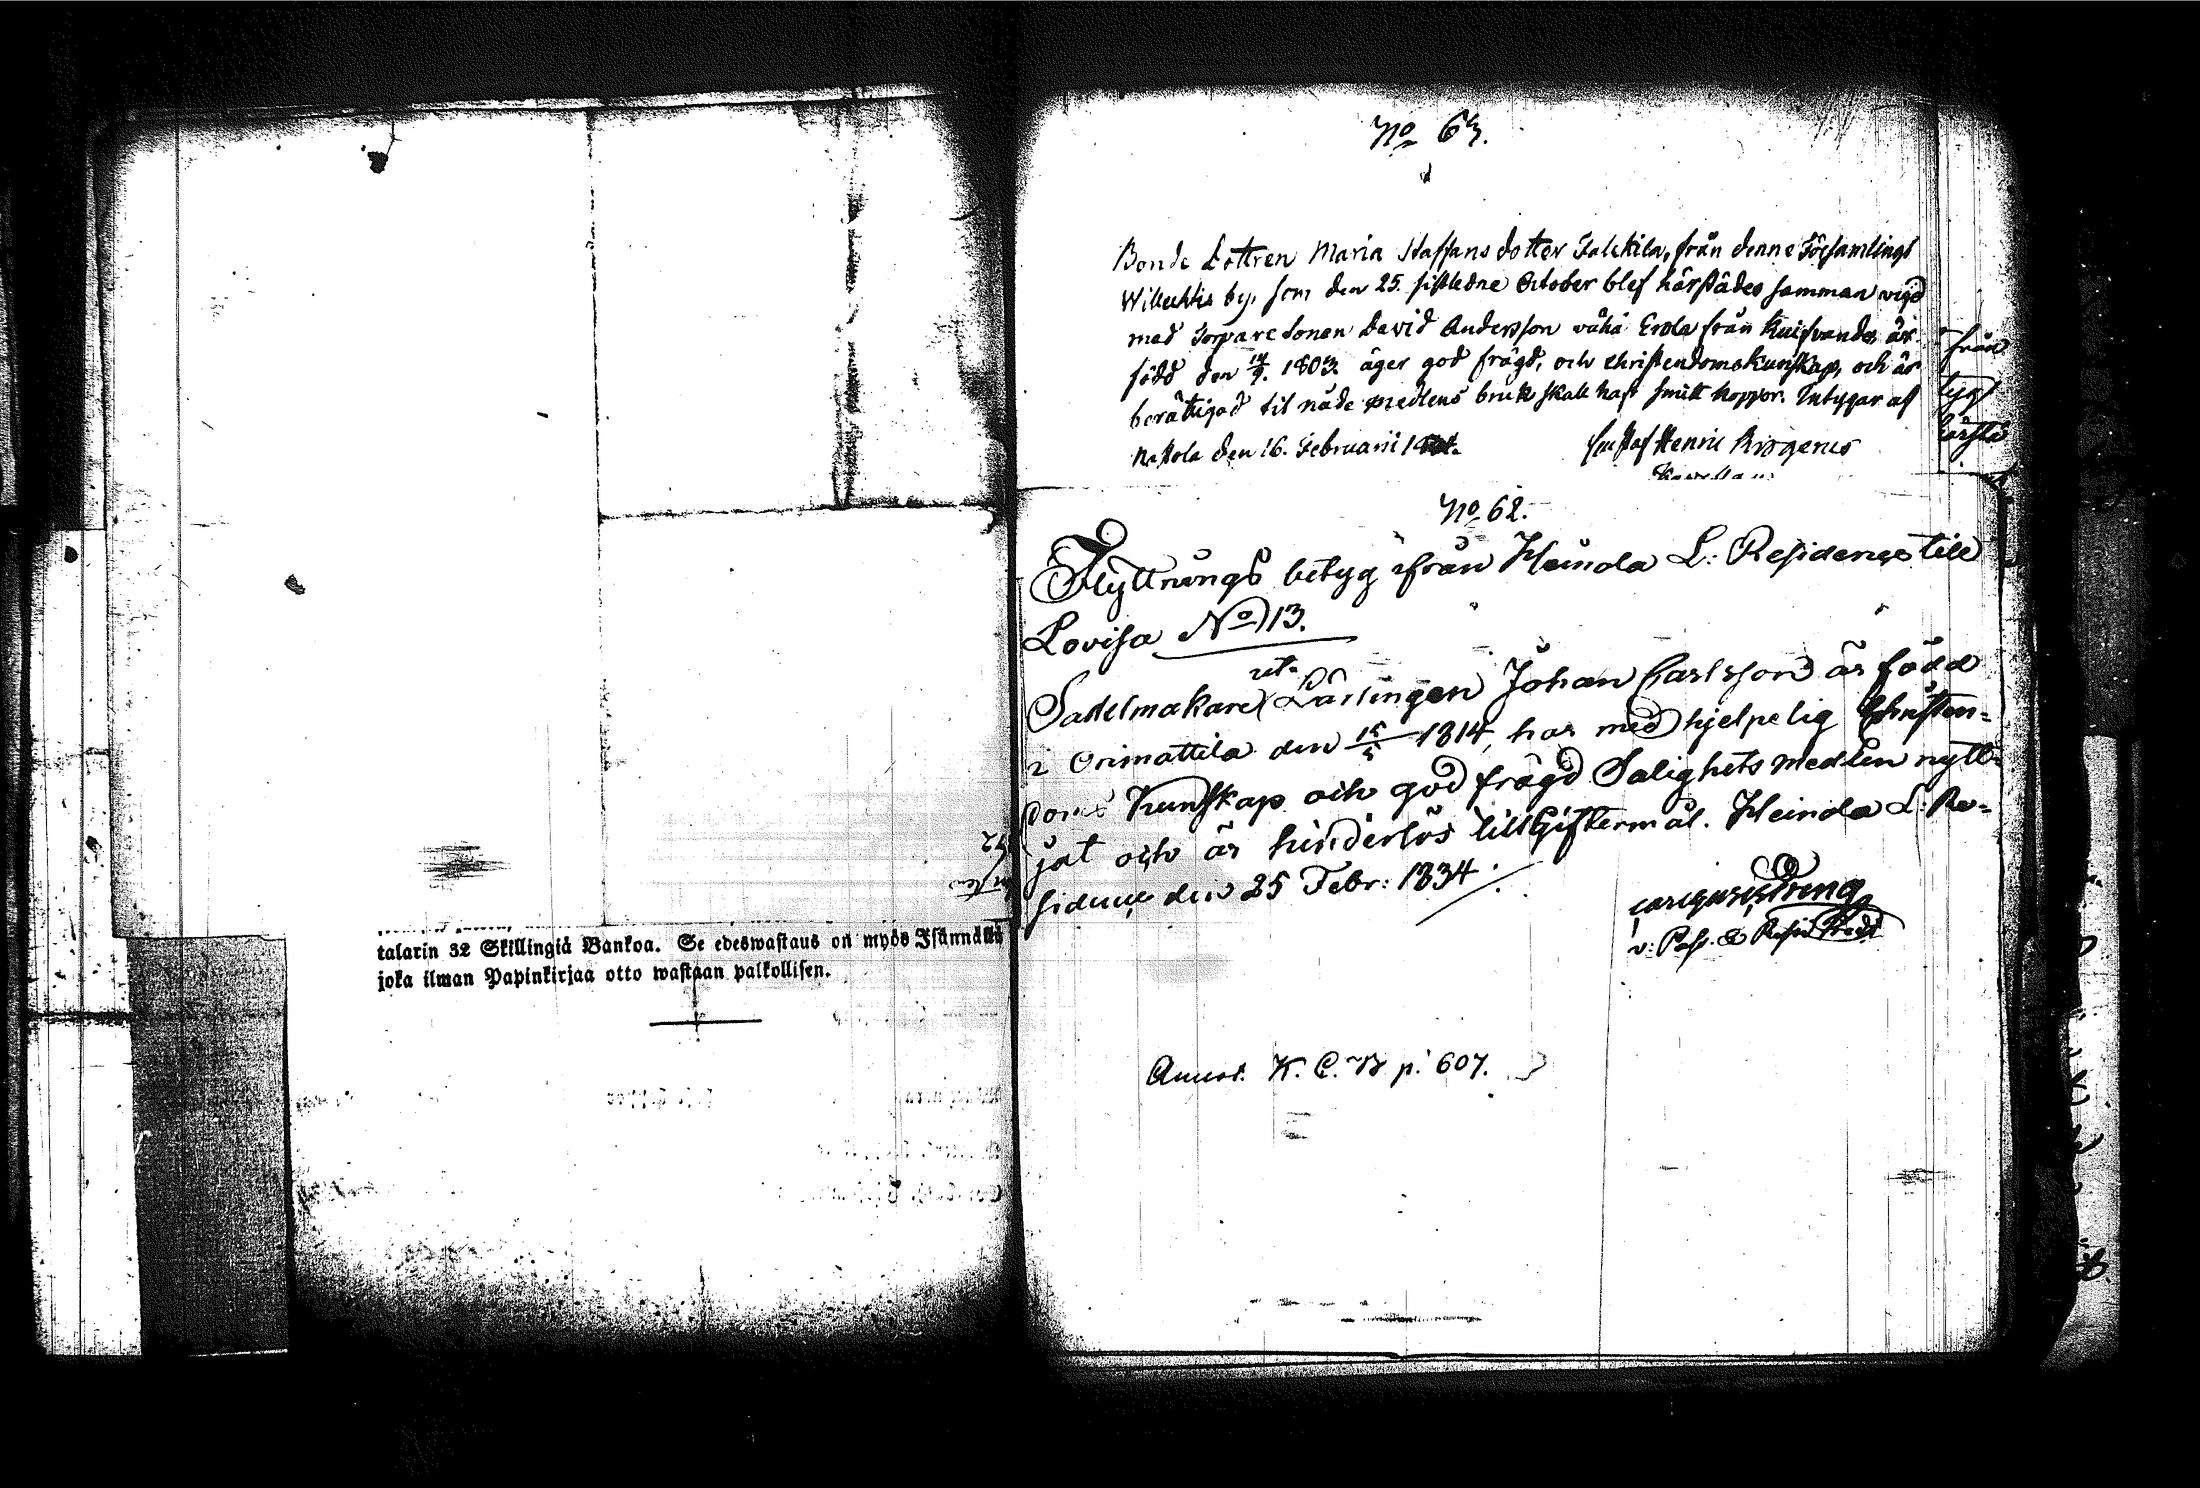 talarin 32 Skillingiä Bankoa. Se edeswastaus on myös Isännällä
joka ilman Papinkirjaa otto wastaan palkollisen.
No 63.
Bonde dottren Maria Staffans dotter Talckila, från denne Församlings
by, som den 25. sistledne October blef härstädes samman vigd
med Torpare sonen David Andersson vähä Erola från är
född den 14/9. 1803. äger god frägd, och christendomskunskap, och är
berättigad til nåde medlens bruk skall haft smitt koppor. Intygar af
den 16. Februarii
Gustaf Henric
No 62.
Flyttnings betyg ifrån Heinola L: Residence till
Lovisa No 13.
ut.
Sadelmakare Lärlingen Johan Carlsson är född
i Orimattila den 15/5 1814, har med hjelpelig Christen-
doms Kunskap och god frägd Salighets medlen nytt-
jat och är hinderlös till Giftermål. Heinola L: Re-
sidence den 25 Febr: 1834.
v: Past.
Annot. K. C. B p. 607.
från